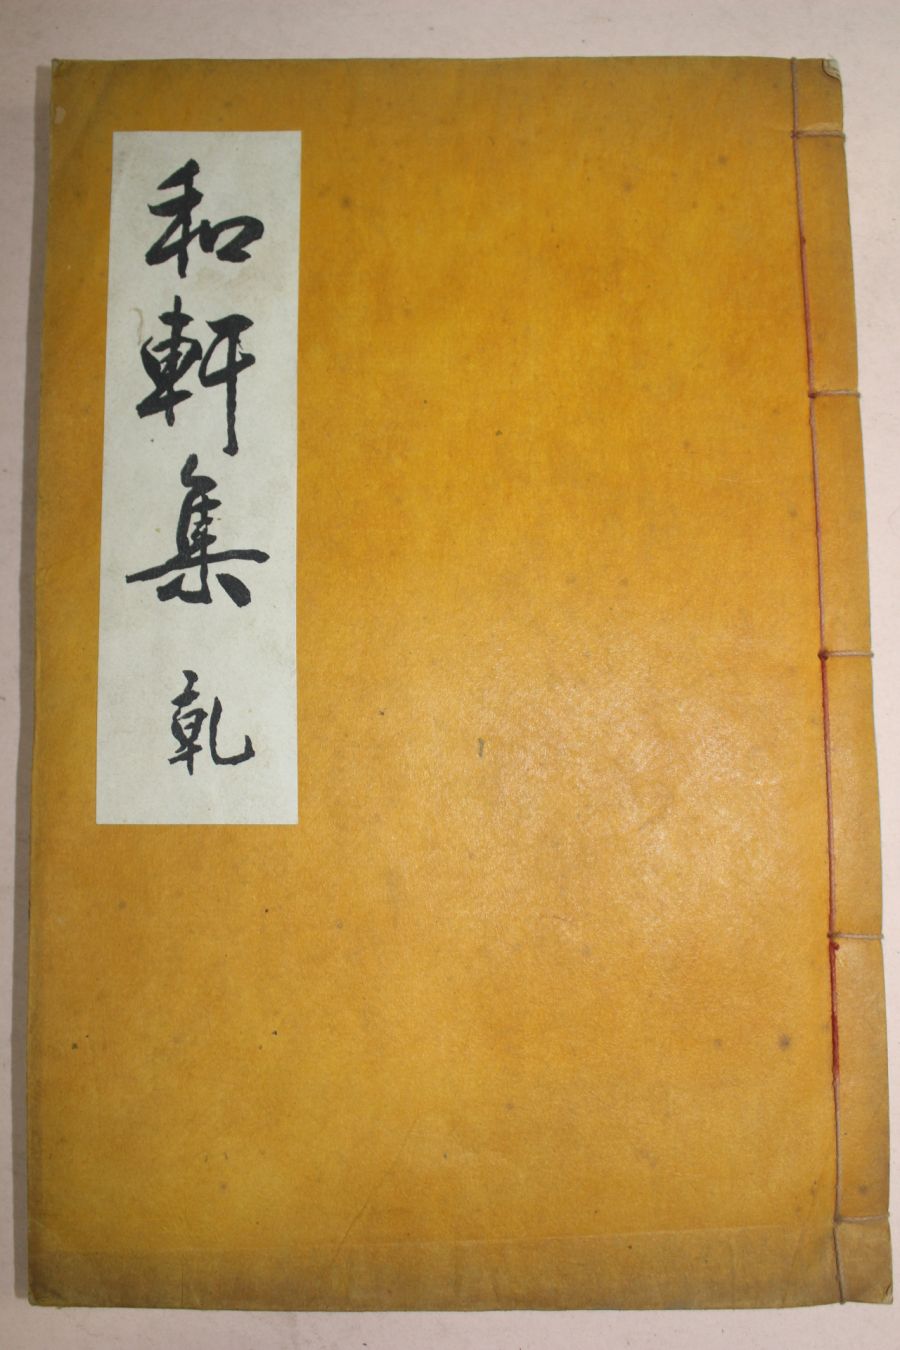 和軒集 乾